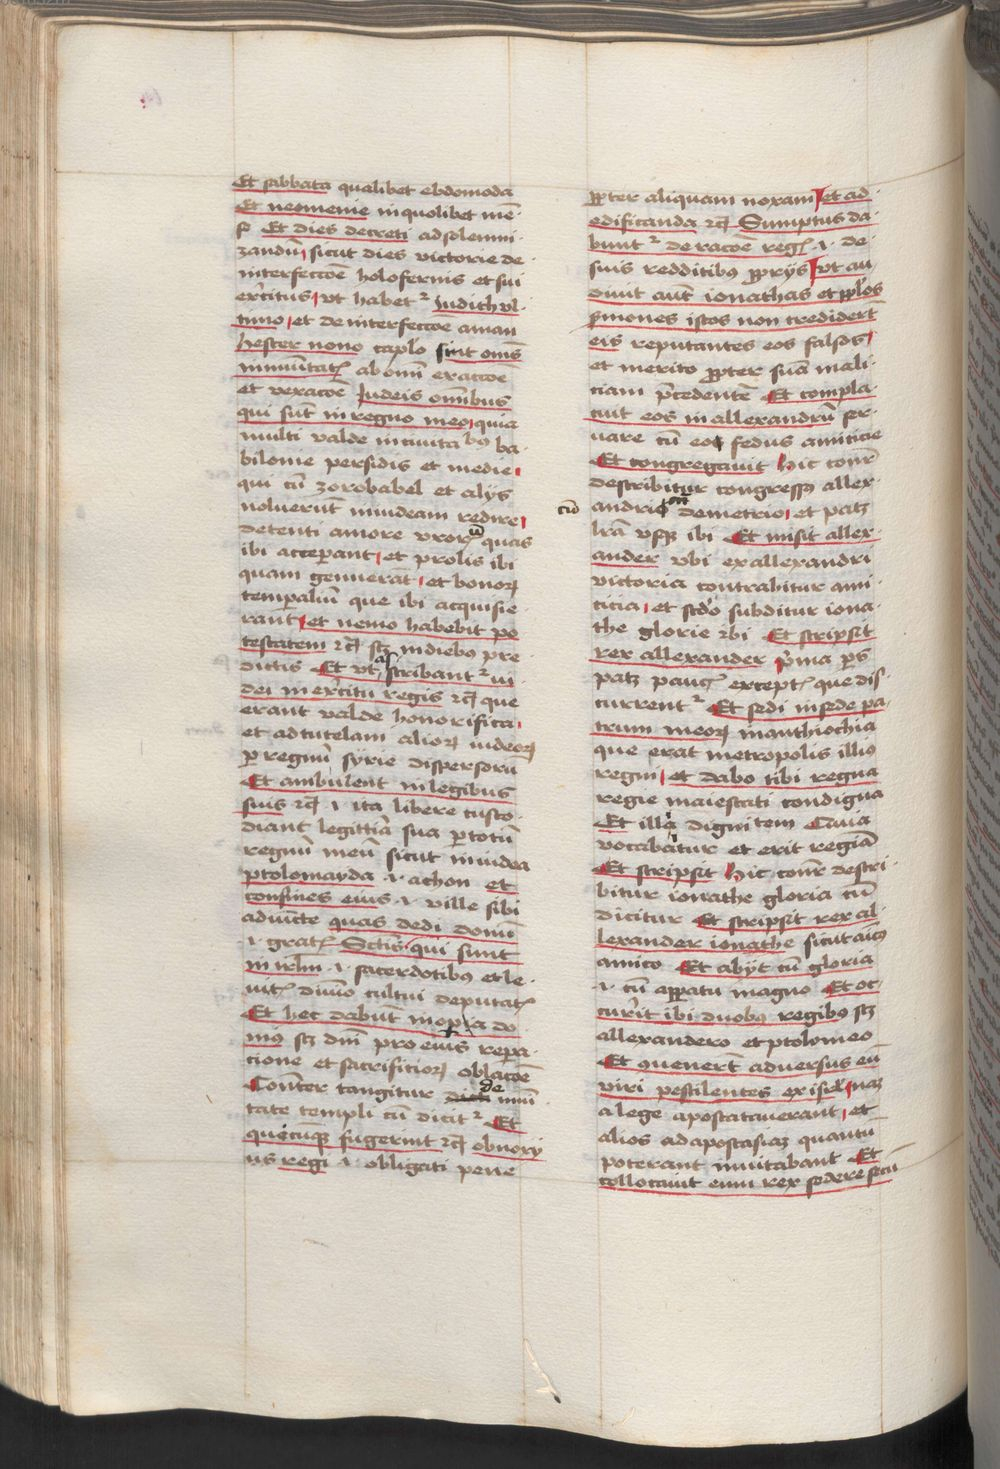 Et sabbata qualibet ebdomoda
Et neomenie in quolibet mē-
s̄ Et dies decreti ad solemni-
zandū sicut dies victorie de
interfectōe holofernis et sui
exͬcitus vt habetᷣ Judith vl-
timo et de interfectōe aman
hester nono caplo sint oms̄
immūitatꝭ ab omī exactōe
et vexacōe Judeis om̄ibus
qui sūt in regno meo quia
multi valde in ciuitabꝰ ba-
bilonie persidis et medie
qui cū zorobabel et alijs
noluerūt in iudeam redire
detenti amore vxorū quas
ibi acceperant et prolis ibi
quam genuerāt et bonoꝝ
temporaliū que ibi acquisie-
rāt et nemo habebit po
testatem ⁊c̄ sꝫ in diebꝰ pre
dictis Et vt asscribantᷣ iu
dei in exͬcitu regis ⁊c̄ que
erant valde honorifica
et ad tutelam alioꝝ iudeoꝝ
ꝑ regnū syrie dispersorū
Et ambulent in legibus
suis ⁊c̄ .i. ita libere custo-
diant legittīa sua ꝑ totū
regnū meū sicut in iudea
ptolomayda .i. achon et
confines eius .i. ville sibi
adiūcte quas dedi donū
.i. gratꝭ Sctīs qui sunt
in irlm̄ .i. sacerdotibꝰ et le-
uitꝭ diuīo cultui deputatꝭ
Et hec dabūt in opera do
miꝰ sꝫ dn̄i pro eius repera-
cione et sacrifitioꝝ oblacōe
Conn̄ter tangitur de imū
tate templi cū dicitᷣ Et
quecūqꝫ fugerint ⁊c̄ obnoxij
us regi .i. obligati pene
ꝓpter aliquam noxam et ad
edificanda ⁊c̄ Sumptus da-
buntᷣ de racōe regꝭ .i. de
suis redditibꝰ ꝓprijs vt au
diuit aūt ionathas et pplos
sermones istos non credidert̄
eis reputantes eos falsos
et merito ꝓpter suā mali-
ciam p̄cedentē Et compla-
cuit eos in allexandrū ser-
uare cū eo fedus amicicie
Et congregauit Hic conn̄r
describitur congressꝰ allex-
cū andri cum demetrio et patꝫ
lr̄a vsqꝫ ibi Et misit allex-
ander vbi ex allexandri
victoria contrahitur ami-
ticia et scd̄o subditur iona-
the glorie ibi Et scripsit
rex allexander p̄ma ꝑs
patꝫ paucꝭ exceptꝭ que dis-
currentᷣ Et sedi in sede pa-
trum meoꝝ in anthiochia
que erat metropolis illiꝰ
regni et dabo tibi regna
regie maiestati condigna
Et illā dignitem Quia
vocabatur et erit regiā
Et scripsit Hic conn̄r descri-
bitur ionathe gloria cū
dicitur Et scripsit rex al-
lexander ionathe sicut aīcꝰ
amico Et abijt cū gloria
.i. cū apparatu magno Et oc-
curͬit ibi duobꝰ regibꝰ sꝫ
allexandero et ptolomeo
Et ꝯuenert̄ aduersus eū
viri pestilentes ex isrl̄ naꝫ
a lege apostatauerant et
alios ad apostasiaꝫ quantū
poterant inuitabant Et
collocauit eum rex sedere secū